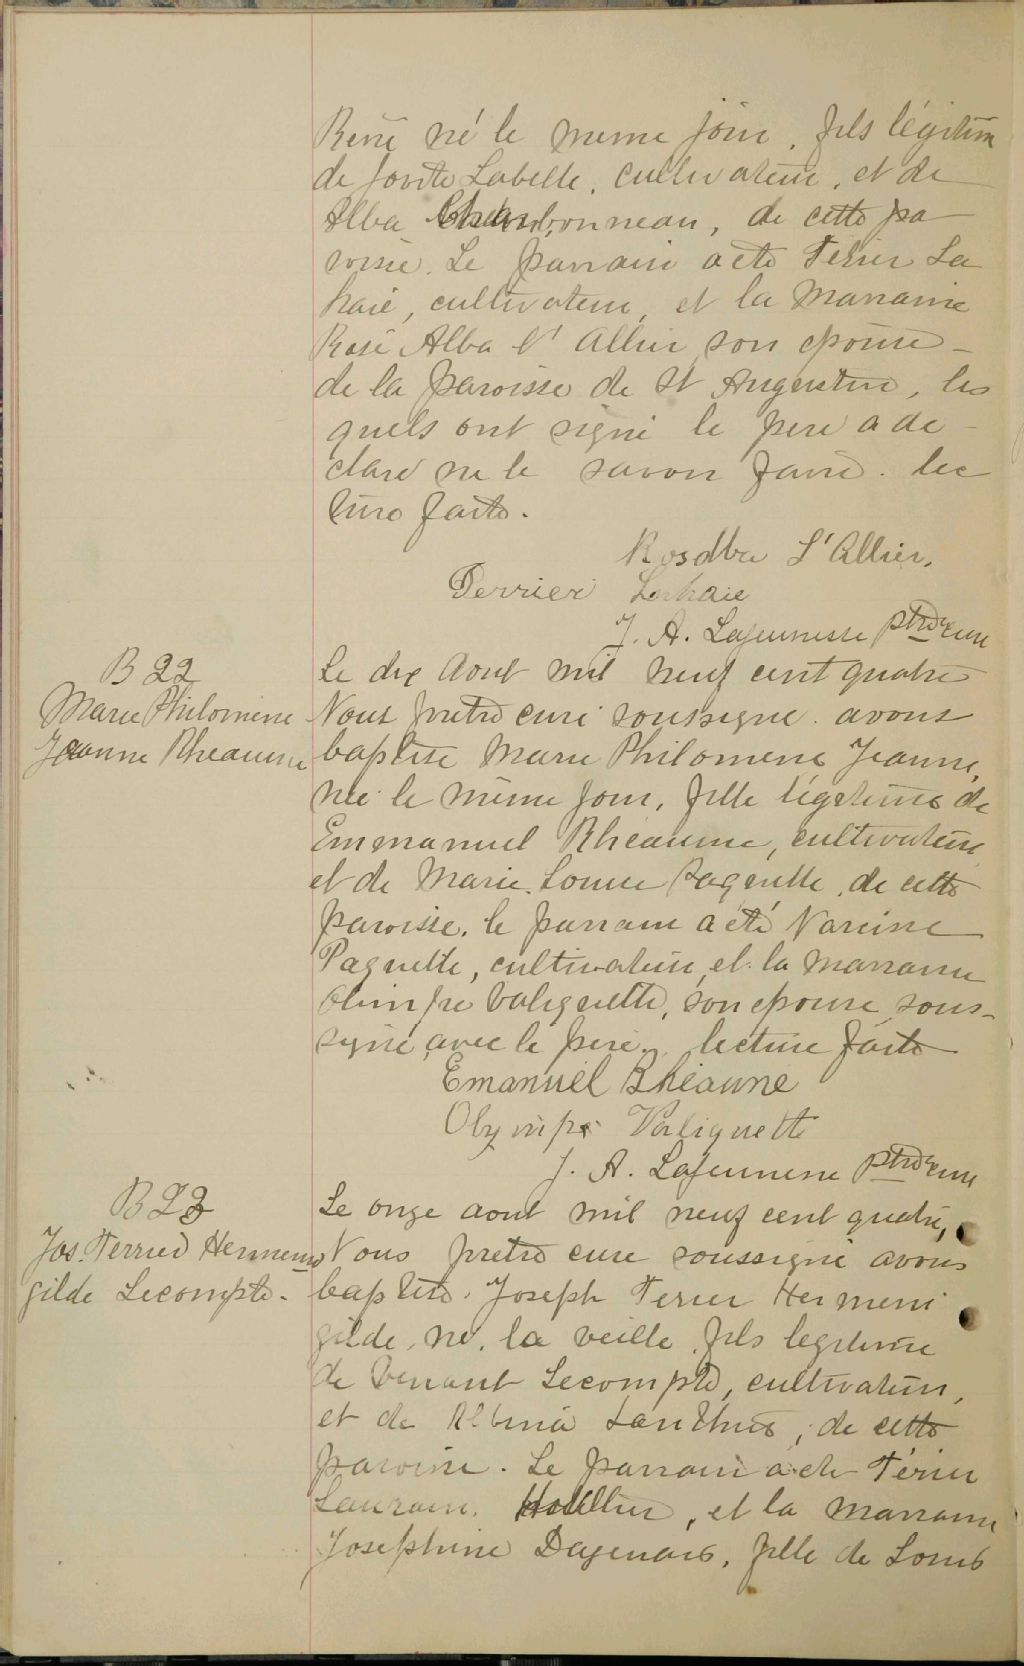 René né le meme jour, fils légitim
de Labelle, cultivateur, et de
Alba Charbonneau, de cette pa
roisse. Le parrain a ete Ferrier La
haie, cultivateur, et la Marraine
Rose Alba L'Allier son epouse
de la paroisse de St Augustin, les
quels ont signé le pere a de-
claré ne le savoir faire. lec
ture faite.
Rosalba L'Allier.
Ferrier Lahaie
J. A. Lajeunesse ptre cure
B 22
Marie Philomene
Jeanne Rheaume
Le dix Aout mil neuf cent quatre
Nous pretre curé soussigné avons
baptise Marie Philomene Jeanne,
née le même jour, fille légitime de
Emmanuel Rheaume, cultivateur
et de Marie Louise Paquette, de cette
paroisse. le parrain a été Narcisse
Paquette, cultivateur, et la Marraine
Olimpe Valiquette, son epouse, sous-
signé avec le pere. lecture faite
Emanuel Rhéaume
Olympe Valiquette
J. A. Lajeunesse ptre cure
B 23
Jos. Ferrier Hermene
gilde Lecompte.
Le onze aout mil neuf cent quatre,
Nous pretre cure soussigné avons
baptise Joseph Ferier Hermeni
gilde, né la veille, fils legitime
de Venant Lecompte, cultivateur,
et de Albina, de cette
paroisse. Le parrain a ete Férier
Laurain, et la Marraine
Josephine Dagenais, fille de Louis